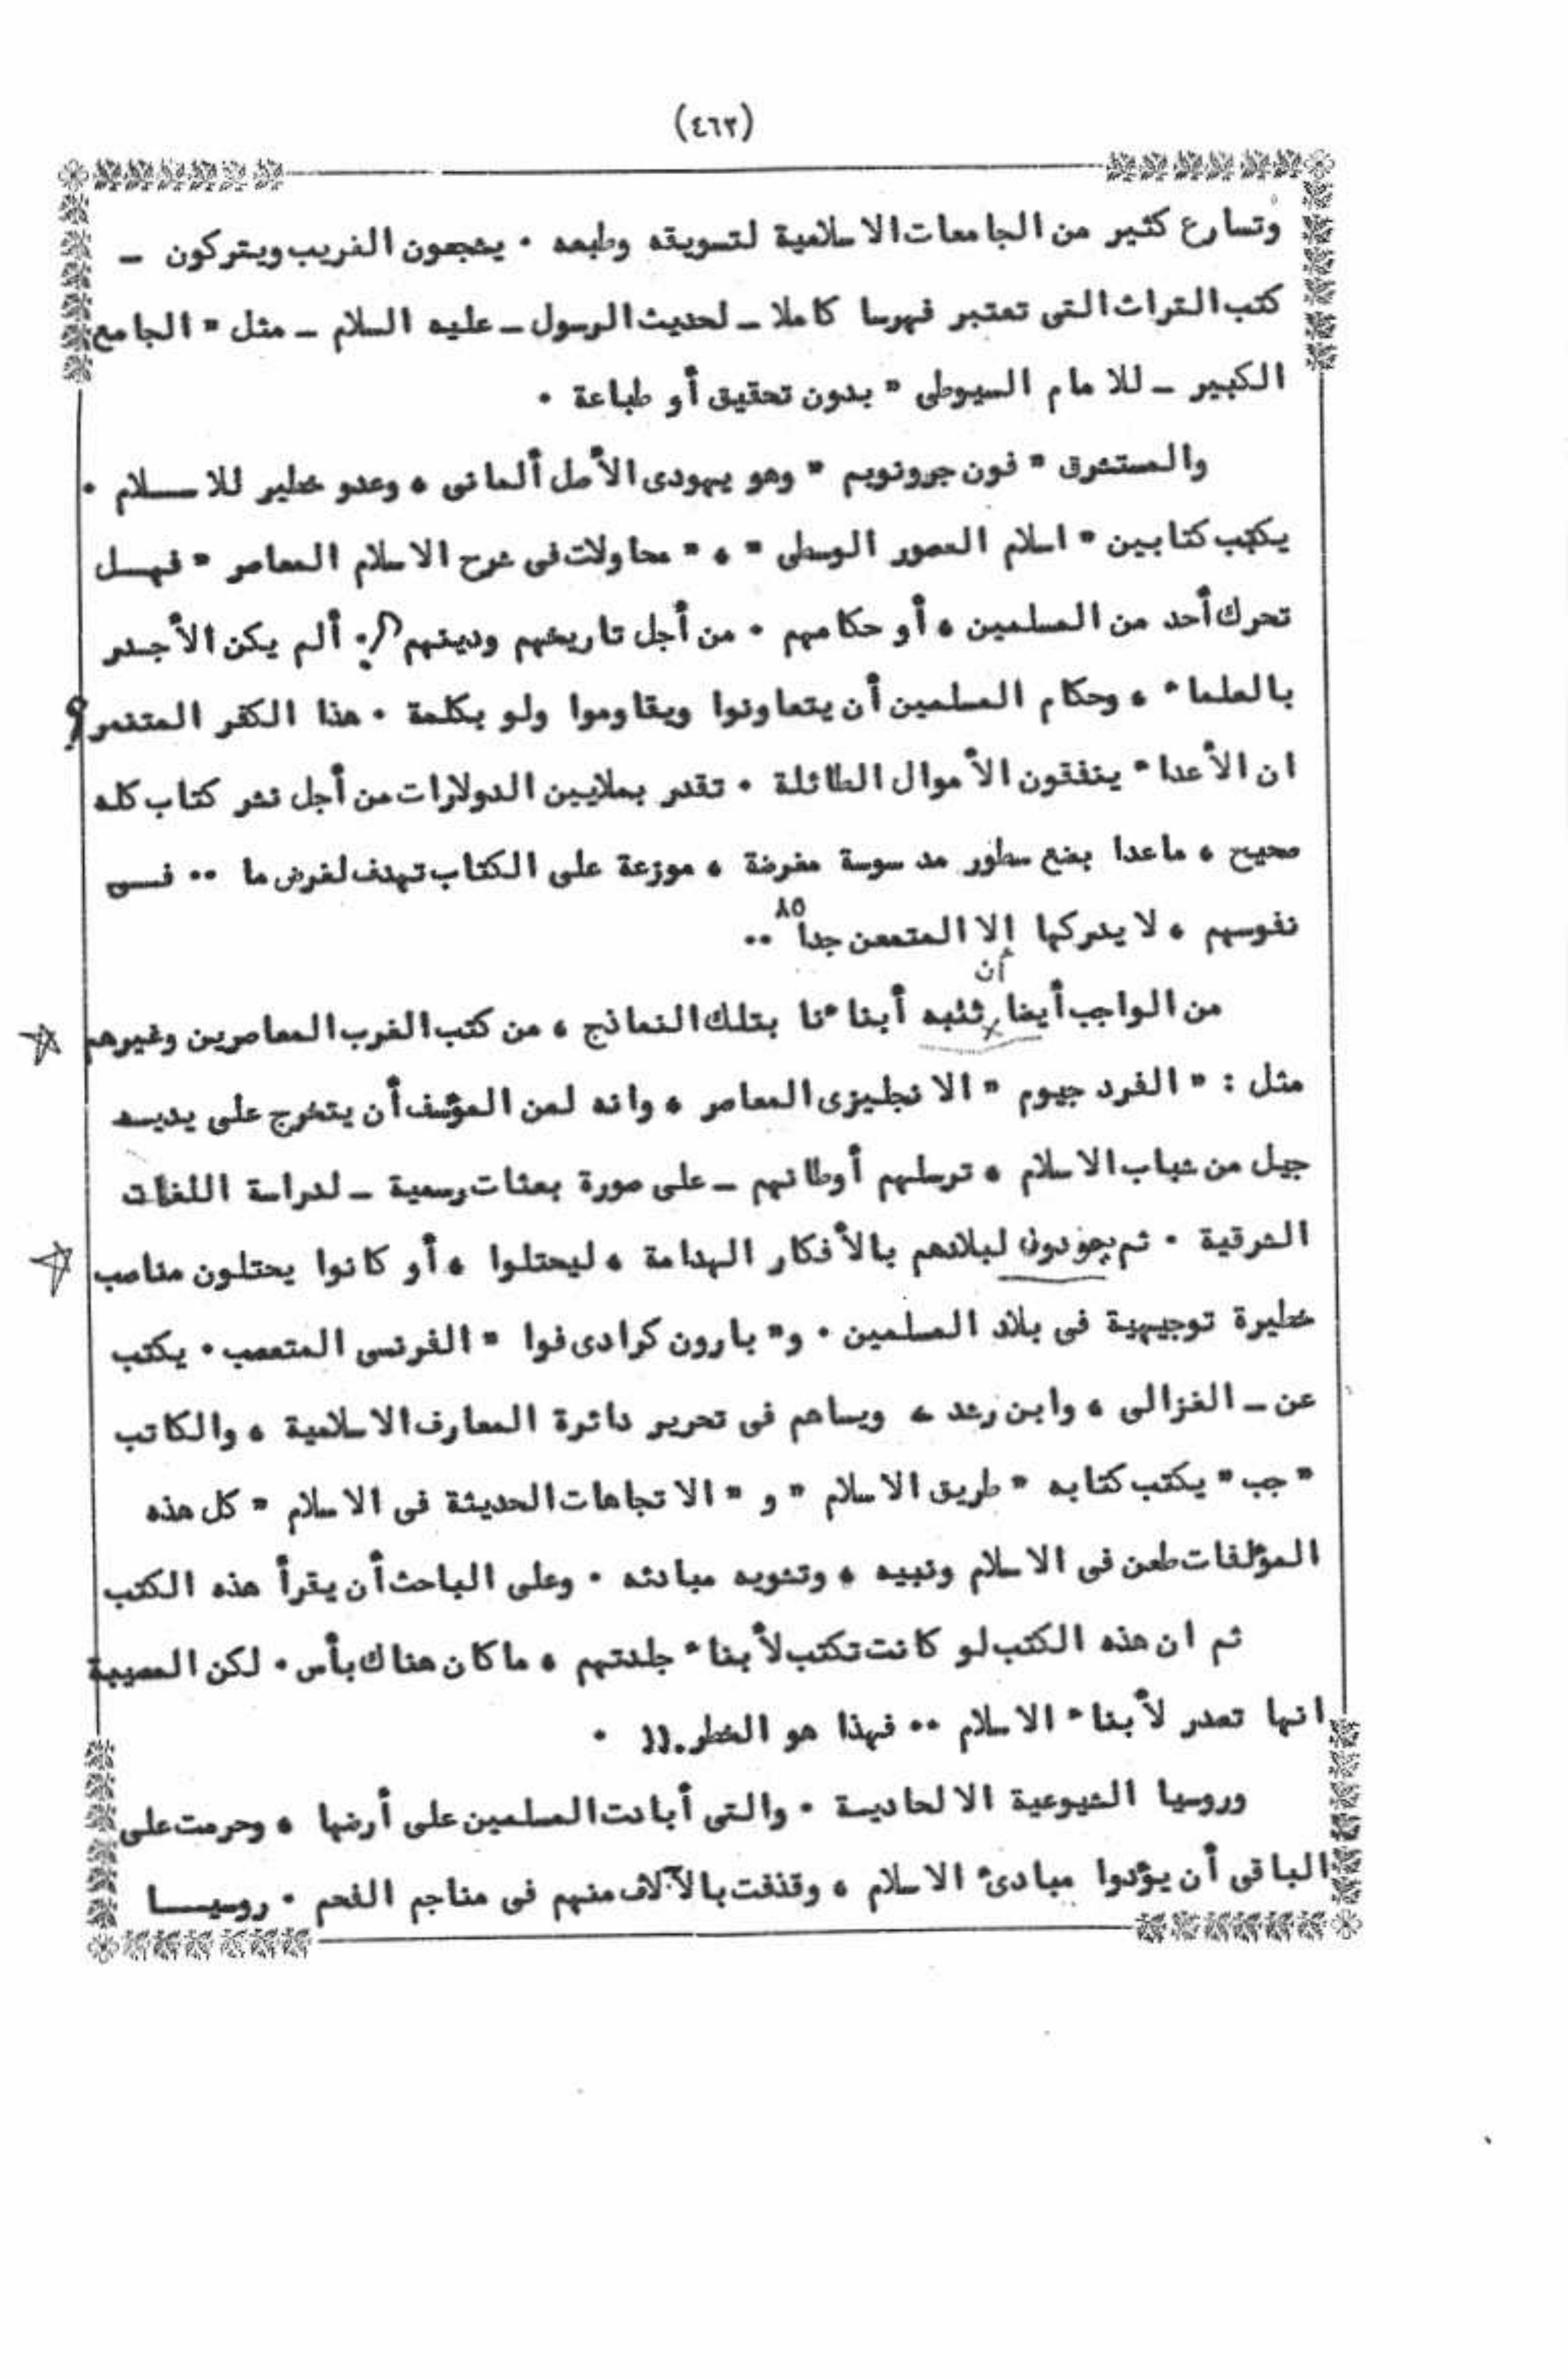 (٤٦٣)
وتسارع كثير من الجامعات الاسلامية لتسويقه وطبعه ٠ يشجعون الغريب ويتركون ــ
كتب التراث التى تعتبر فهرسا كاملا ــ لحديث الرسول ــ عليه السلام ــ مثل " الجامع
الكبير ــ للامام السيوطى " بدون تحقيق أو طباعة ٠
والمستشرق " فون جرونويم " وهو يهودى الأصل ألمانى ، وعدو خطير للاسـلام ٠
يكتب كتابين " اسلام العصور الوسطى " ، " محاولات فى شرح الاسلام المعاصر " فهـل
تحرك أحد من المسلمين ، أو حكامهم ٠ من أجل تاريخهم ودينهم ؟٠ ألم يكن الأجـدر
بالعلماء ، وحكام المسلمين أن يتعاونوا ويقاوموا ولو بكلمة ٠ هذا الكفر المتنمر ؟
ان الأعداء ينفقون الأموال الطائلة ٠ تقدر بملايين الدولارات من أجل نشر كتاب كله
صحيح ، ماعدا بضع سطور مدسوسة مغرضة ، موزعة على الكتاب تهدف لغرض ما ٠٠ فـى
نفوسهم ، لا يدركها إلا المتمعن جدا ٨٥ ٠٠
من الواجب أيضا أن ننبه أبناءنا بتلك النماذج ، من كتب الغرب المعاصرين وغيرهم
مثل : " الفرد جيوم " الانجليزى المعاصر ، وانه لمن المؤسف أن يتخرج على يديـه
جيل من شباب الاسلام ، ترسلهم أوطانهم ــ على صورة بعثات رسمية ــ لدراسة اللغات
الشرقية ٠ ثم يعودون لبلادهم بالأفكار الهدامة ، ليحتلوا ، أو كانوا يحتلون مناصب
خطيرة توجيهية فى بلاد المسلمين ٠ و" بارون كرادى فوا " الفرنسى المتعصب ٠ يكتب
عن ــ الغزالى ، وابن رشد ، ويساهم فى تحرير دائرة المعارف الاسلامية ، والكاتب
" جب " يكتب كتابه " طريق الاسلام " و " الاتجاهات الحديثة فى الاسلام " كل هذه
المؤلفات طعن فى الاسلام ونبيه ، وتشويه مبادئه ٠ وعلى الباحث أن يقرأ هذه الكتب
ثم ان هذه الكتب لو كانت تكتب لأبناء جلدتهم ، ماكان هناك بأس ٠ لكن المصيبة
انها تصدر لأبناء الاسلام ٠٠ فهذا هو الخطر !! ٠
وروسيا الشيوعية الالحاديـة ٠ والتى أبادت المسلمين على أرضها ، وحرمت على
الباقى أن يؤدوا مبادئ الاسلام ، وقذفت بالآلاف منهم فى مناجم الفحم ٠ روسيــا